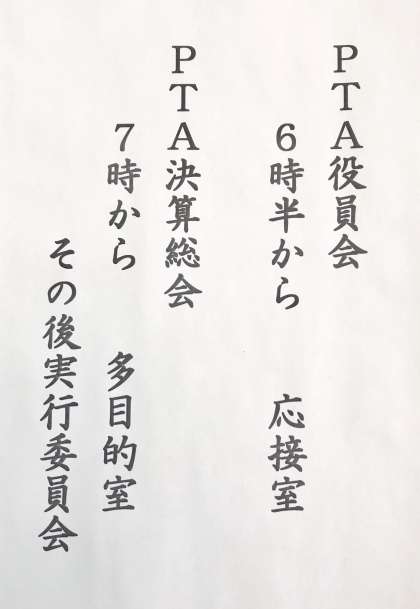 PTA役員会
6時半から 応接室
PTA決算総会
7時から 多目的室
その後実行委員会